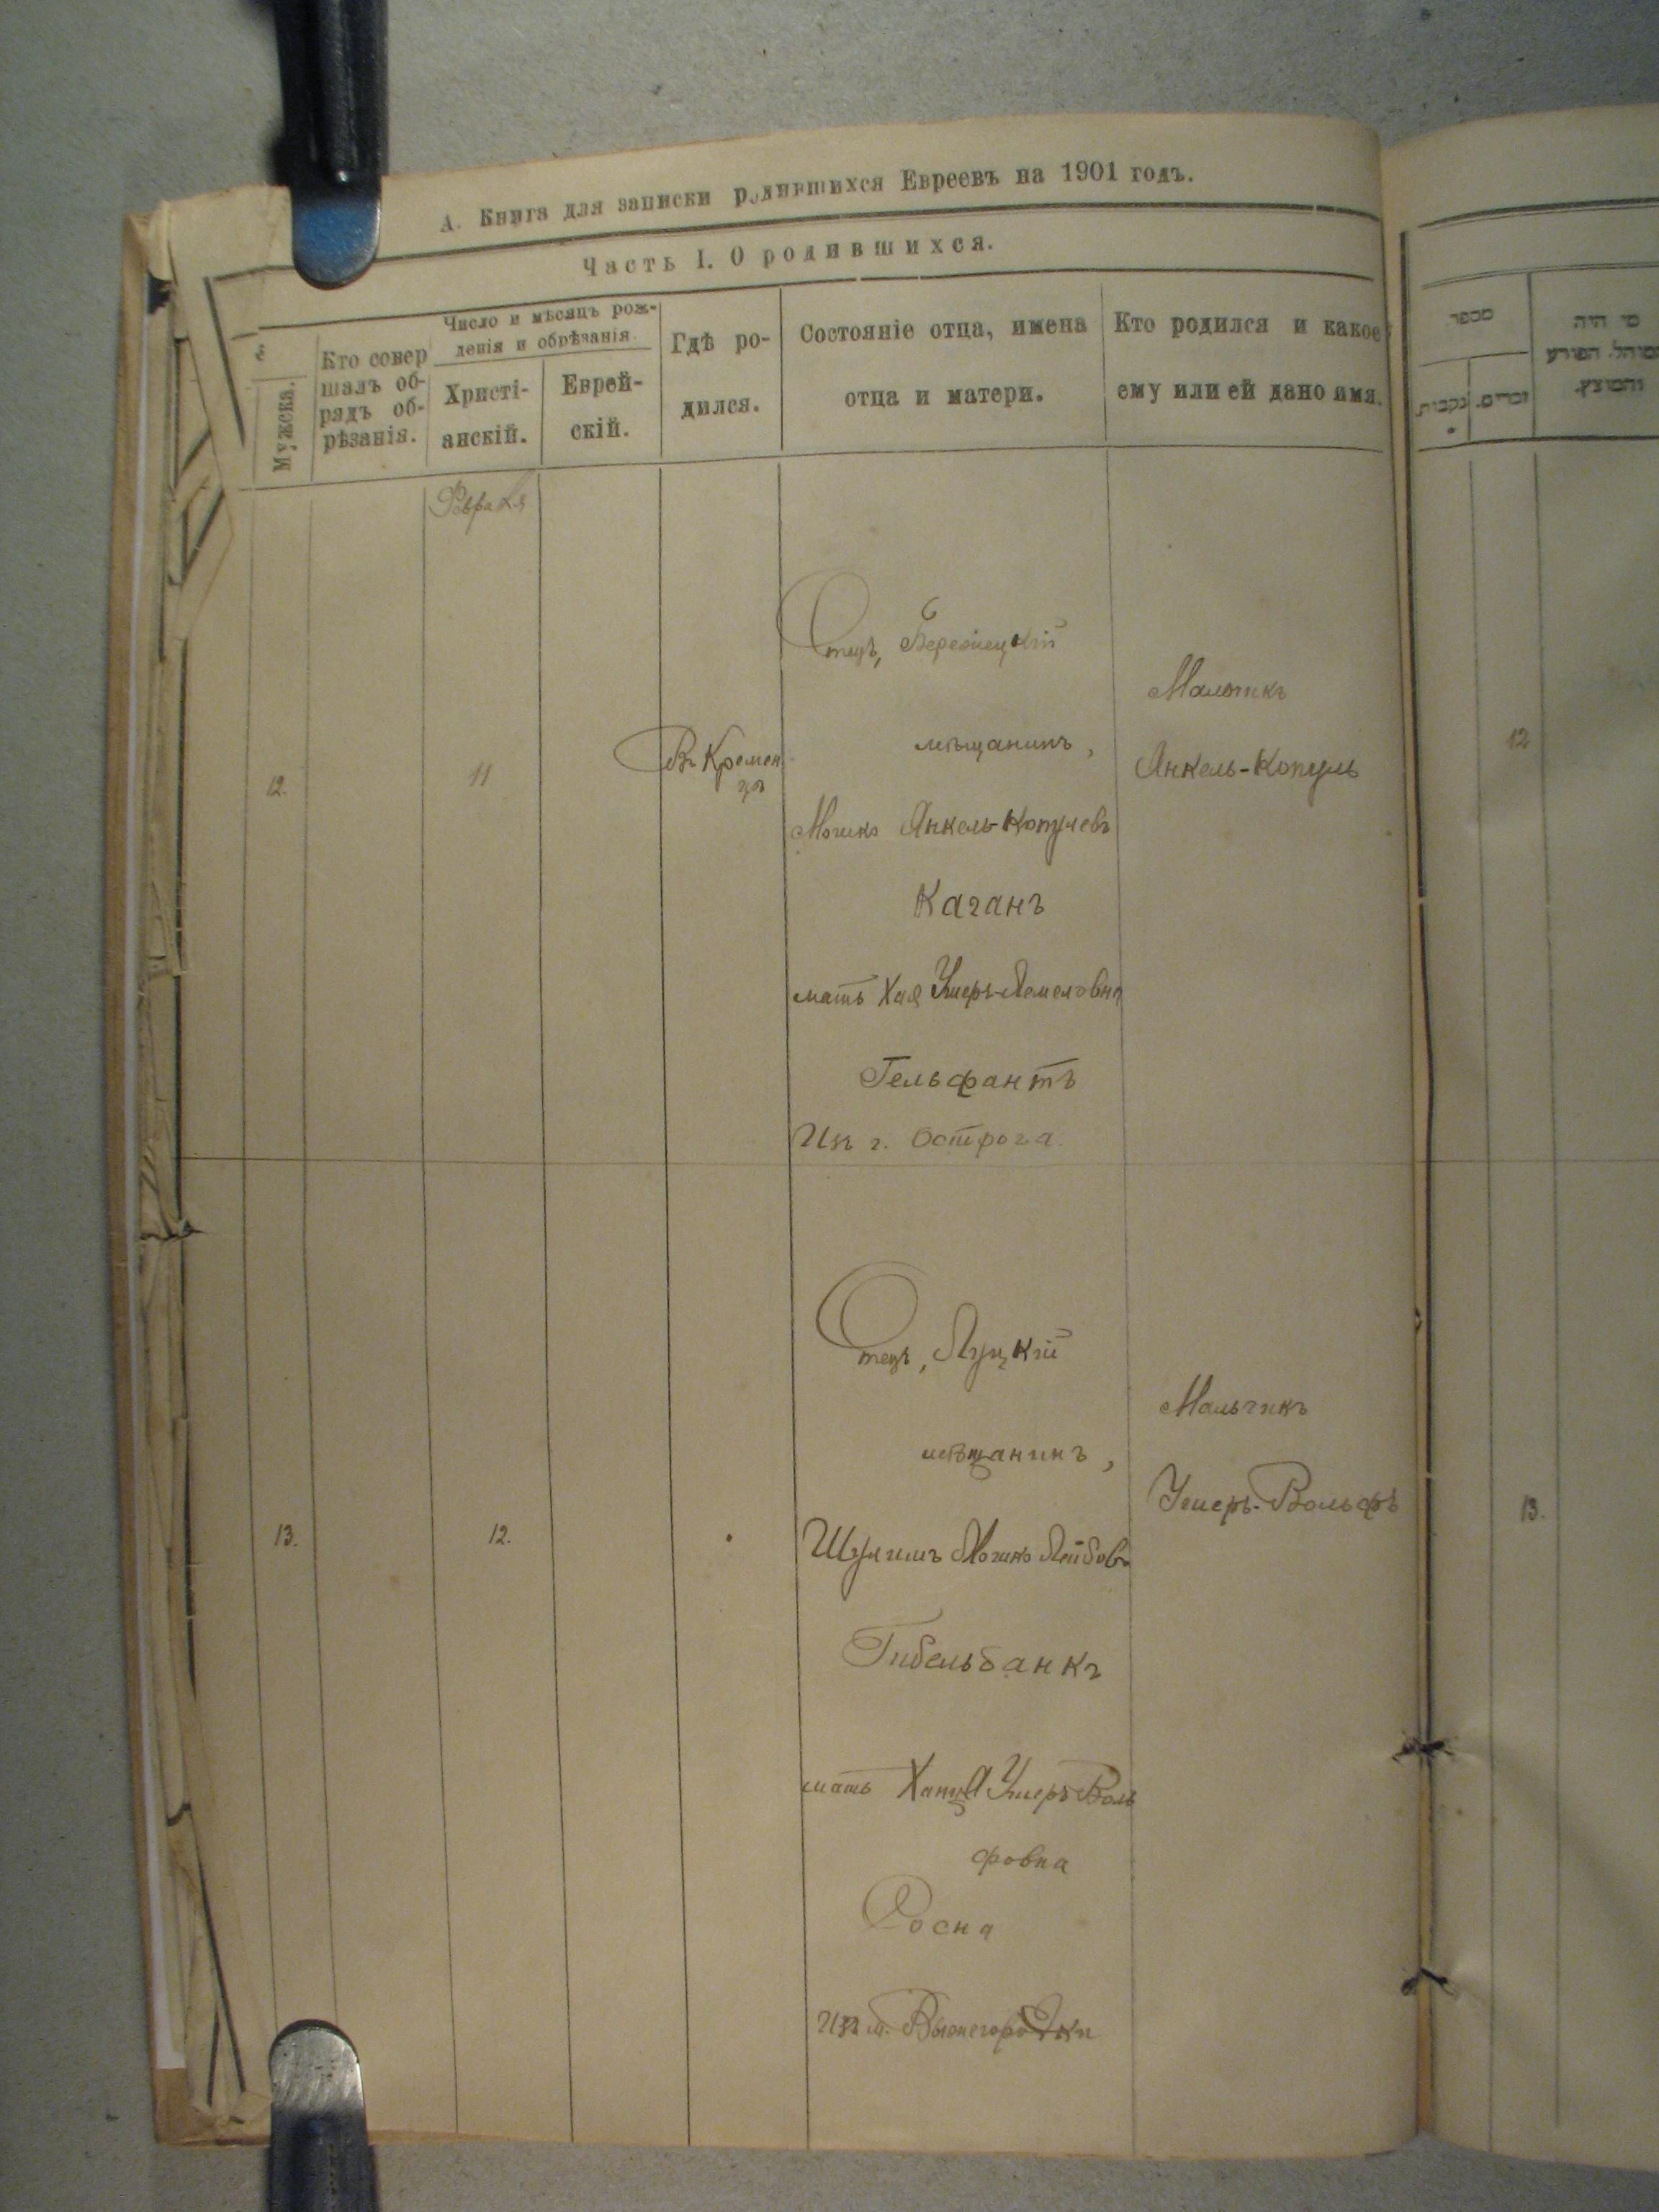 А. Книга для записки родившихся Евреевъ на 1901 годъ.
Часть I. О родившихся.
Мужска.
Кто совер
шалъ об-
рядъ об-
рѣзанія.
Число и мѣсяцъ рож-
денія и обрѣзанія.
Христі-
анскій.
Еврей-
скій.
Гдѣ ро-
дился.
Состояніе отца, имена
отца и матери.
Кто родился и какое
ему или ей дано имя.
מספר
נקבות. זכרים.
מי היה
המוהל, הפורע
והמוצץ.
Февраля
12.
11
Въ Кремен
цѣ
Отецъ, Бережецкій
мѣщанинъ,
Мошко Янкель-Копулевъ
Каганъ
мать Хая Ушеръ-Лемеловна
Гельфантъ
Изъ г. Острога.
Мальчикъ
Янкель-Копуль
12
13.
12.
Отецъ, Луцкій
мѣщанинъ,
Шулимъ Мошко Лейбовъ
Гибельбанкъ
мать Ханця Ушеръ Воль
фовна
Росна
Изъ м. Вышегородки
Мальчикъ
Ушеръ-Вольфъ
13.